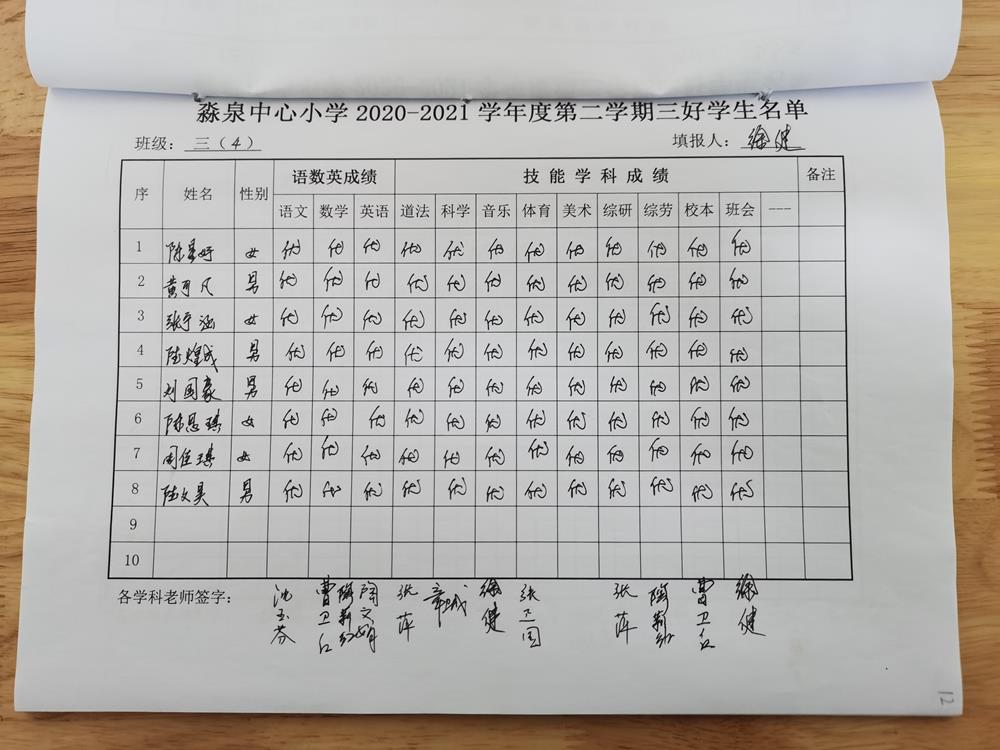 淼泉中心小学 2020-2021 学年度第二学期三好学生名单
班级: 三（4） 填报人: 徐健
序 姓名 性别 语数英成绩 技能学科成绩 备注
语文 数学 英语 道法 科学 音乐 体育 美术 综研 综劳 校本 班会 ---
1 陈 女 优 优 优 优 优 优 优 优 优 优 优 优
2 黄可凡 男 优 优 优 优 优 优 优 优 优 优 优 优
3 张 涵 女 优 优 优 优 优 优 优 优 优 优 优 优
4 陆煌成 男 优 优 优 优 优 优 优 优 优 优 优 优
5 刘国豪 男 优 优 优 优 优 优 优 优 优 优 优 优
6 陈思琪 女 优 优 优 优 优 优 优 优 优 优 优 优
7 周佳琪 女 优 优 优 优 优 优 优 优 优 优 优 优
8 陆文昊 男 优 优 优 优 优 优 优 优 优 优 优 优
9
10
各学科老师签字: 沈玉芬 曹卫 陶莉 陶文娟 张萍 章城 徐健 张卫国 张萍 陶莉 曹卫 徐健
12